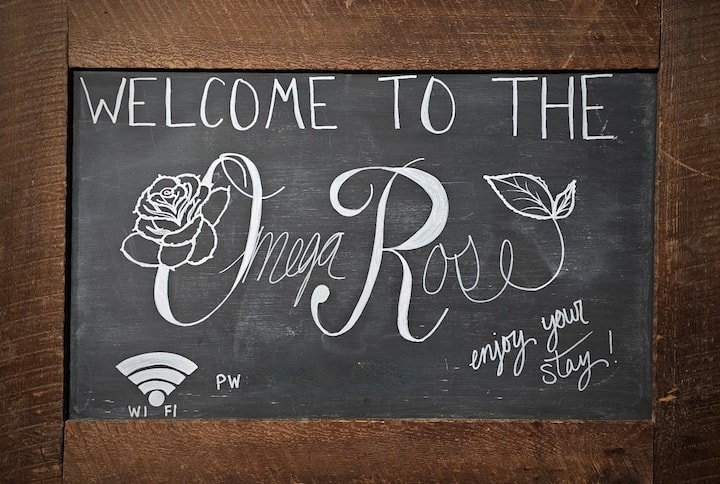 WELCOME TO THE
Omega Rose
enjoy your
stay!
PW
WI FI